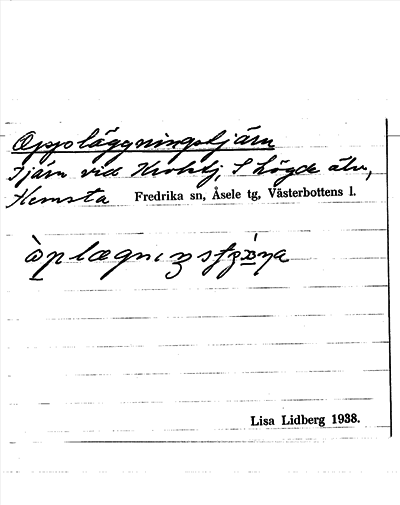 Oppläggningstjärn
Tjärn vid Kroktj, S Lögde älv,
Hemsta Fredrika sn, Åsele tg, Västerbottens l.
Lisa Lidberg 1938.